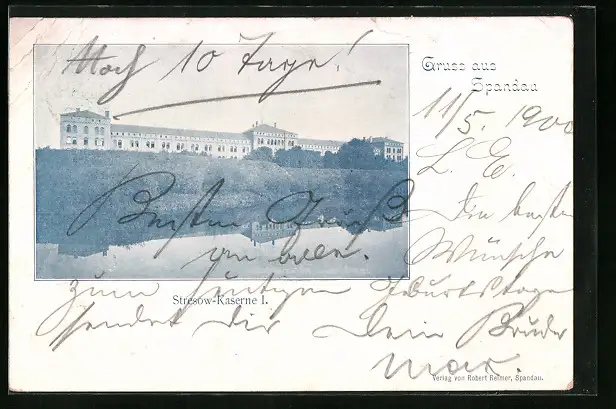 Noch 10 Tage!
Gruss aus
Spandau
11/5. 1900
L. E.
Besten Gruß
an alle.
Die besten
Wünsche
zum heutigen Geburtstage
Stresow-Kaserne I.
sendet Dir Dein Bruder
Max.
Verlag von Robert Reimer, Spandau.